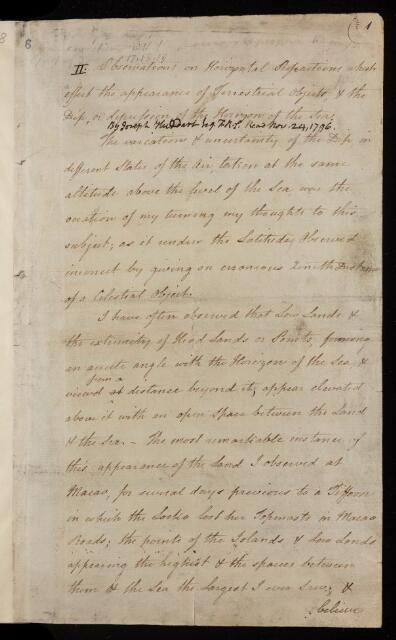 1
8
8
II. Observations on Horizontal Refractions which
effect the appearance of Terrestrial Objects & the
Dip, or depression of the Horizon of the Sea.
By Joseph Huddart Esq. F.R.S. Read Nov. 24, 1796.
The variation & uncertainty of the Dip in
different States of the Air, taken at the same
altitude above the level of the Sea was the
occation of my turning my thoughts to this
subject; as it renders the Latitudes Observed
incorrect by giving an erroneous Zenith Distance
of a Celestial Object.
I have often observed that Low Lands &
the extremity of Head Lands or Points, forming
an acute angle with the Horizon of the Sea, &
from a
viewed at distance beyond it, appear elevated
above it with an open Space between the Land
& the Sea. - The most remarkable instance of
this appearance of the Land I observed at
Macao, for several days previous to a Tiffoon
in which the Locko lost her Topmasts in Macao
Roads; the points of the Islands & Low Lands
appearing the highest & the spaces between
them & the Sea the Largest I ever saw; &
believe